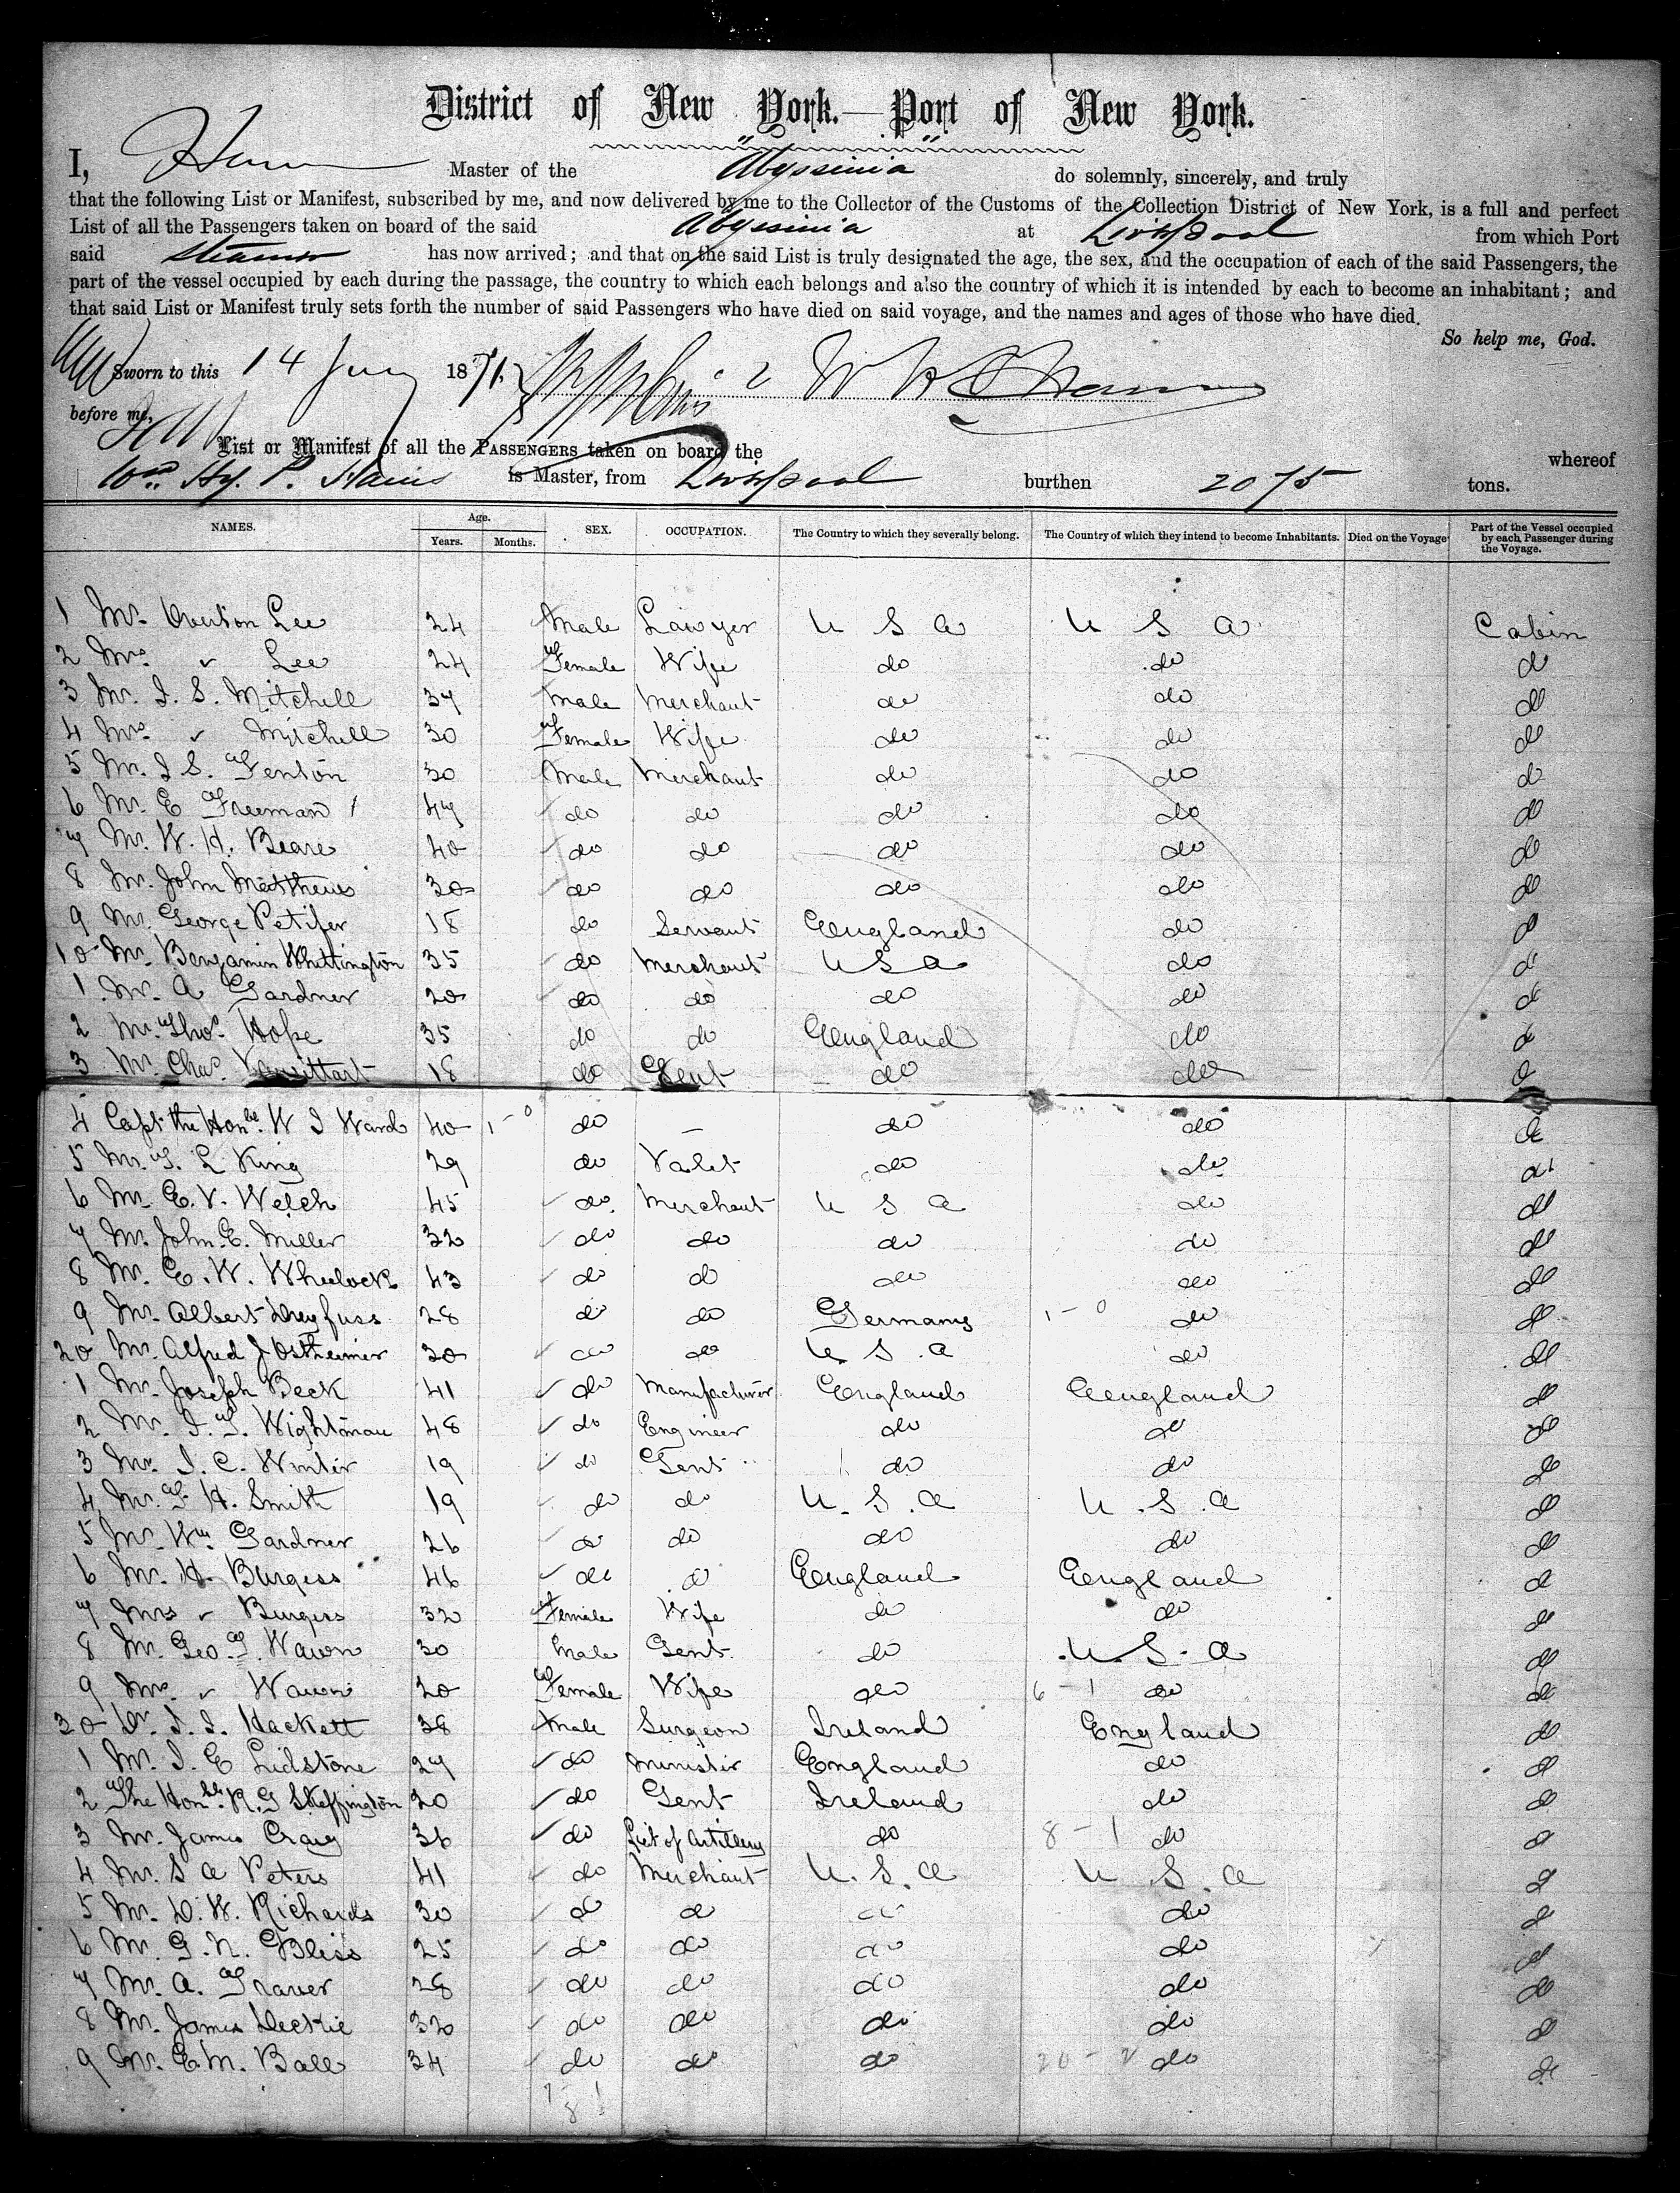 District of New York.—Port of New York.
I, Master of the Abyssinia do solemnly, sincerely, and truly
that the following List or Manifest, subscribed by me, and now delivered by me to the Collector of the Customs of the Collection District of New York, is a full and perfect
List of all the Passengers taken on board of the said Abyssinia at Liverpool from which Port
said Steamer has now arrived; and that on the said List is truly designated the age, the sex, and the occupation of each of the said Passengers, the
part of the vessel occupied by each during the passage, the country to which each belongs and also the country of which it is intended by each to become an inhabitant; and
that said List or Manifest truly sets forth the number of said Passengers who have died on said voyage, and the names and ages of those who have died.
So help me, God.
Sworn to this 14 1871
before me,
List or Manifest of all the PASSENGERS taken on board the whereof
Wm. Hy. P. Hains is Master, from Liverpool burthen 2075 tons.
NAMES. Age. Years. Months. SEX. OCCUPATION. The Country to which they severally belong. The Country of which they intend to become Inhabitants. Died on the Voyage Part of the Vessel occupied by each Passenger during the Voyage.
1 Mr. Overton Lee 24 Male Lawyer U S A U S A Cabin
2 Mrs. " Lee 24 Female Wife do do do
3 Mr. J. S. Mitchell 37 Male Merchant do do do
4 Mrs " Mitchell 30 Female Wife do do do
5 Mr. J S. Fenton 30 Male Merchant do do do
6 Mr. E Freeman 47 do do do do do
7 Mr. W. H. Beare 40 do do do do do
8 Mr. John Matthews 30 do do do do do
9 Mr. George Petifer 18 do Servant England do do
10 Mr. Benjamin Whittington 35 do Merchant U S A do do
1 Mr. A Gardner 20 do do do do do
2 Mr. Thos. Hope 35 do do England do do
3 Mr. Chas. Vansittart 18 do Gent do do do
4 Capt the Honble. W J Ward 40 1-0 do — do do do
5 Mr. T. L King 29 do Valet do do do
6 Mr. E. V. Welch 45 do Merchant U S A do do
7 Mr. John E. Miller 32 do do do do do
8 Mr. E. W. Wheelock 43 do do do do do
9 Mr. Albert Dreyfuss 28 do do Germany 1-0 do do
20 Mr. Alfred J Ostheimer 30 do do U. S. A do do
1 Mr. Joseph Beck 41 do Manufacturer England England do
2 Mr. J. T. Wightman 48 do Engineer do do do
3 Mr. J. C. Winter 19 do Gent do do do
4 Mr. F. H. Smith 19 do do U. S. A U. S. A do
5 Mr. Wm Gardner 26 do do do do do
6 Mr. H. Burgess 46 do do England England do
7 Mrs " Burgess 32 Female Wife do do do
8 Mr. Geo. F. Wawn 30 Male Gent. do U. S. A do
9 Mrs. " Wawn 20 Female Wife do 6-1 do do
30 Dr. J. J. Hackett 38 Male Surgeon Ireland England do
1 Mr. J. E Lidstone 27 do Minister England do do
2 The Honble. R. G Skeffington 20 do Gent Ireland do do
3 Mr. James Craig 36 do Liet of Artillery do 8-1 do do
4 Mr. S A Peters 41 do Merchant U. S. A U. S. A do
5 Mr. D. W. Richards 30 do do do do do
6 Mr. G. N. Bliss 25 do do do do do
7 Mr. A. Traver 28 do do do do do
8 Mr. James Deckie 32 do do do do do
9 Mr. E. M. Ball 34 do do do 20-2 do do